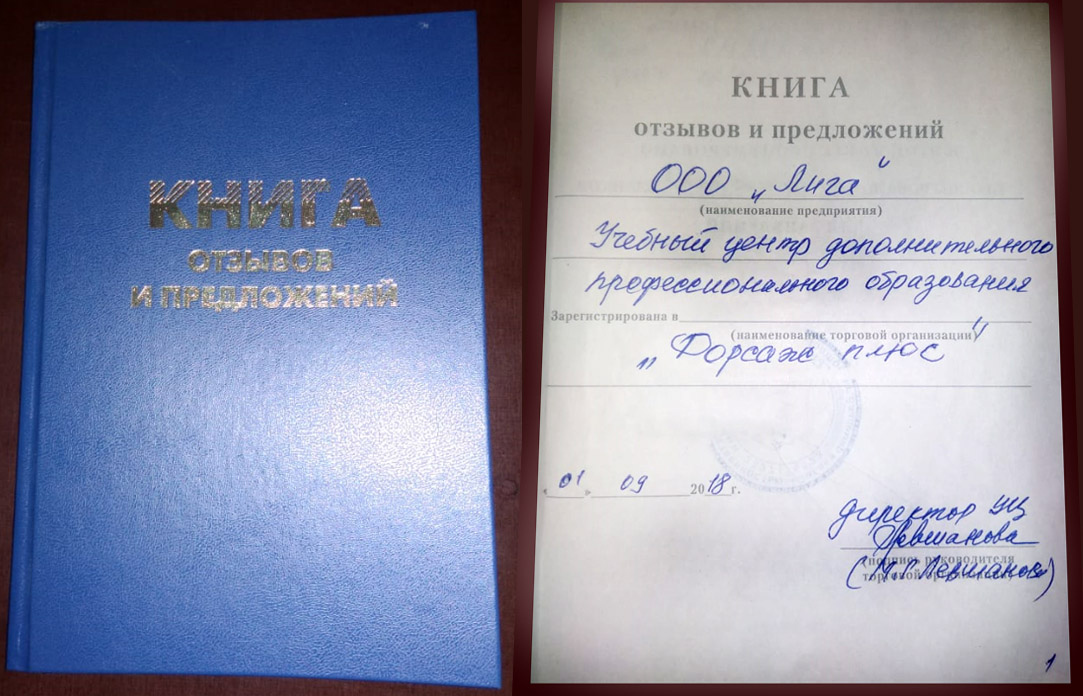 КНИГА
ОТЗЫВОВ
И ПРЕДЛОЖЕНИЙ
КНИГА
отзывов и предложений
ООО „Лига“
(наименование предприятия)
Учебный центр дополнительного
профессионального образования
Зарегистрирована в
(наименование торговой организации)
„Форсаж плюс“
« 01 » 09 2018 г.
директор УЦ
Левшанова
(подпись руководителя
торговой
Левшанова)
1